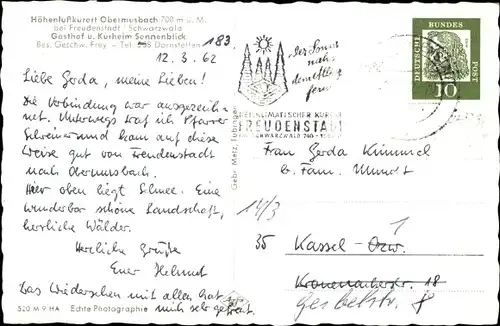 Höhenluftkurort Obermusbach 700 m ü. M.
bei Freudenstadt Schwarzwald
Gasthof u. Kurheim Sonnenblick
Bes. Geschw. Frey - Tel. 238 Dornstetten
183
12. 3. 62
Liebe Gerda, meine Lieben!
Die Verbindung war ausgezeich-
net. Unterwegs traf ich Pfarrer
Schreiner und kam auf diese
Weise gut von Freudenstadt
nach Obermusbach.
Hier oben liegt Schnee. Eine
wunderbar schöne Landschaft,
herrliche Wälder.
Herzliche Grüße
Euer Helmut
Das Wiedersehen mit allen hat
mich sehr gefreut.
520 M 9 HA Echte Photographie
Gebr. Metz, Tübingen
der Sonne
nah
dem Alltag
fern
HEILKLIMATISCHER KURORT
FREUDENSTADT
SCHWARZWALD 740 -
DEUTSCHE BUNDESPOST
10
Frau Gerda Kümmel
b. Fam. Mundt
14/3
1
35 Kassel-
18
8